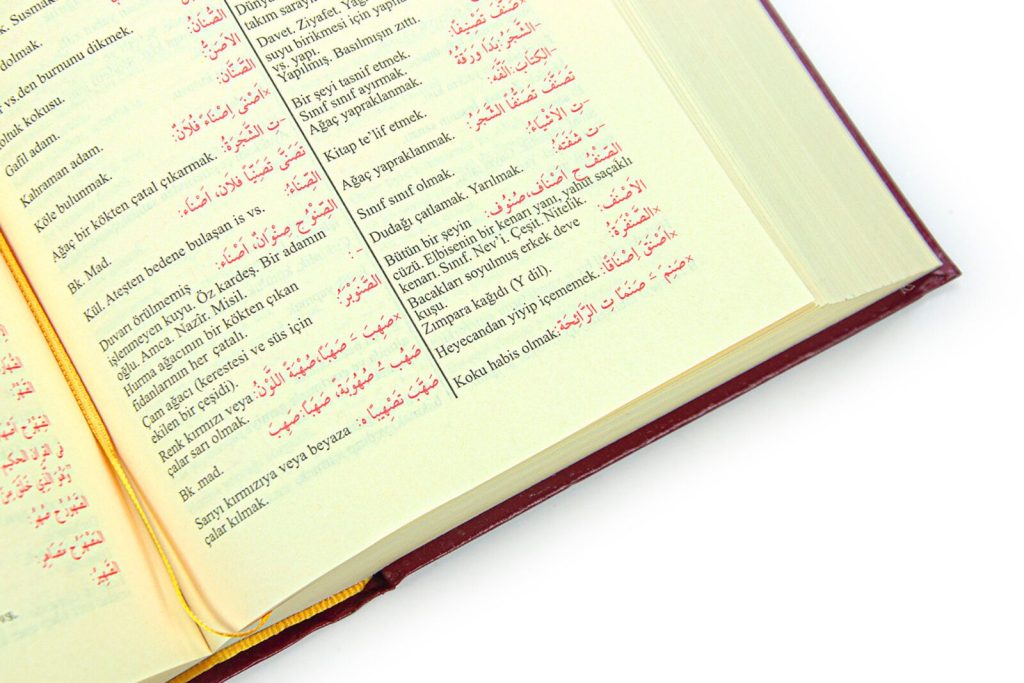 Davet. Ziyafet.
suyu birikmesi için
vs. yapı.
Yapılmış. Basılmışın zıttı.
Bir şeyi tasnif etmek. صَنَّفَ تَصْنِيفًا:
Sınıf sınıf ayırmak.
Ağaç yapraklanmak. –الشَّجَرُ: بَدَا وَرَقُهُ
Kitap te'lif etmek. –الكِتَابَ: أَلَّفَهُ:
Ağaç yapraklanmak. تَصَنَّفَ تَصَنُّفًا الشَّجَرُ:
Sınıf sınıf olmak. –تِ الأَشْيَاءُ:
Dudağı çatlamak. Yarılmak. –تْ شَفَتُهُ:
Bütün bir şeyin الصِّنْفُ ج أَصْنَاف، صُنُوف:
cüzü. Elbisenin bir kenarı yanı, yahut saçaklı
kenarı. Sınıf. Nev'i. Çeşit. Nitelik.
Bacakları soyulmuş erkek deve الأَصْنَفُ
kuşu.
Zımpara kağıdı (Y dil). ×الصَّنْفَرَةُ:
Heyecandan yiyip içememek. ×أَصْنَقَ إِصْنَاقًا:
Koku habis olmak. ×صَنِمَ – صَنَمًا تِ الرَّائِحَةُ:
k. Susmak
dolmak.
r vs.den burnunu dikmek.
oltuk kokusu. الصُّنَانُ:
Gafil adam. الأَصَنُّ:
Kahraman adam. الصَّنَّان:
Köle bulunmak. ×أَصْنَى إِصْنَاءً فُلَانٌ:
Ağaç bir kökten çatal çıkarmak. –تِ الشَّجَرَةُ:
Bk. Mad. تَصَنَّى تَصَنِّيًا فلان، أَصْنَاء:
Kül. Ateşten bedene bulaşan is vs. الصِّنَاءُ:
Duvarı örülmemiş الصِّنْوُ ج صِنْوَان، أَصْنَاء:
işlenmeyen kuyu. Öz kardeş. Bir adamın
oğlu. Amca. Nazîr. Misil.
Hurma ağacının bir kökten çıkan –:
fidanlarının her çatalı.
Çam ağacı (kerestesi ve süs için الصَّنَوْبَرُ:
ekilen bir çeşidi).
Renk kırmızı veya ×صَهِبَ – صَهَبًا، صُهْبَةً اللَّوْنُ:
çalar sarı olmak.
Bk .mad. صَهُبَ – صُهُوبَةً، صَهَبًا: صَهِبَ
Sarıyı kırmızıya veya beyaza صَهَّبَ تَصْهِيبًا ه:
çalar kılmak.